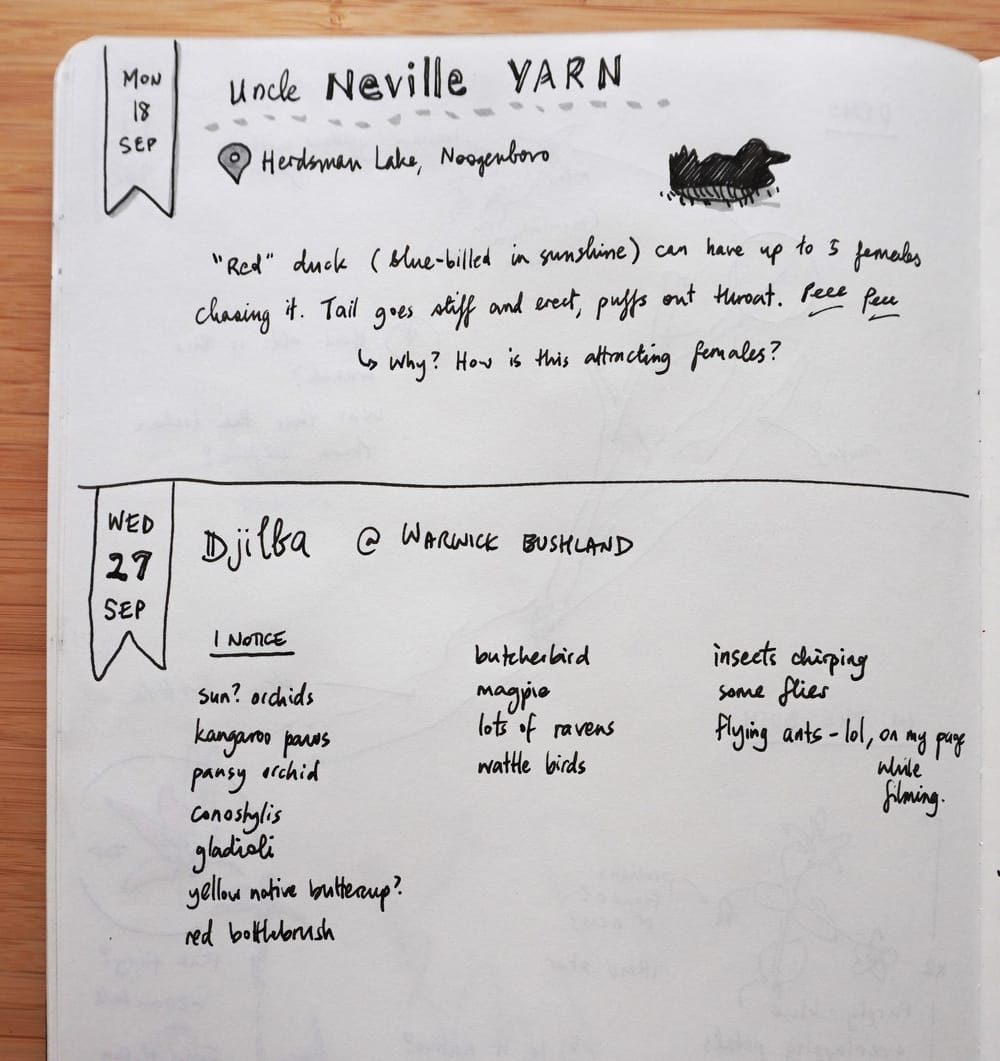 MON
18
SEP
Uncle Neville YARN
Herdsman Lake, Noogenboro
"Red" duck (blue-billed in sunshine) can have up to 5 females
chasing it. Tail goes stiff and erect, puffs out throat. Peee Peee
↳ Why? How is this attracting females?
WED
27
SEP
Djilba @ WARWICK BUSHLAND
I NOTICE
sun? orchids
kangaroo paws
pansy orchid
conostylis
gladioli
yellow native buttercup?
red bottlebrush
butcherbird
magpie
lots of ravens
wattle birds
insects chirping
some flies
flying ants - lol, on my page
while
filming.